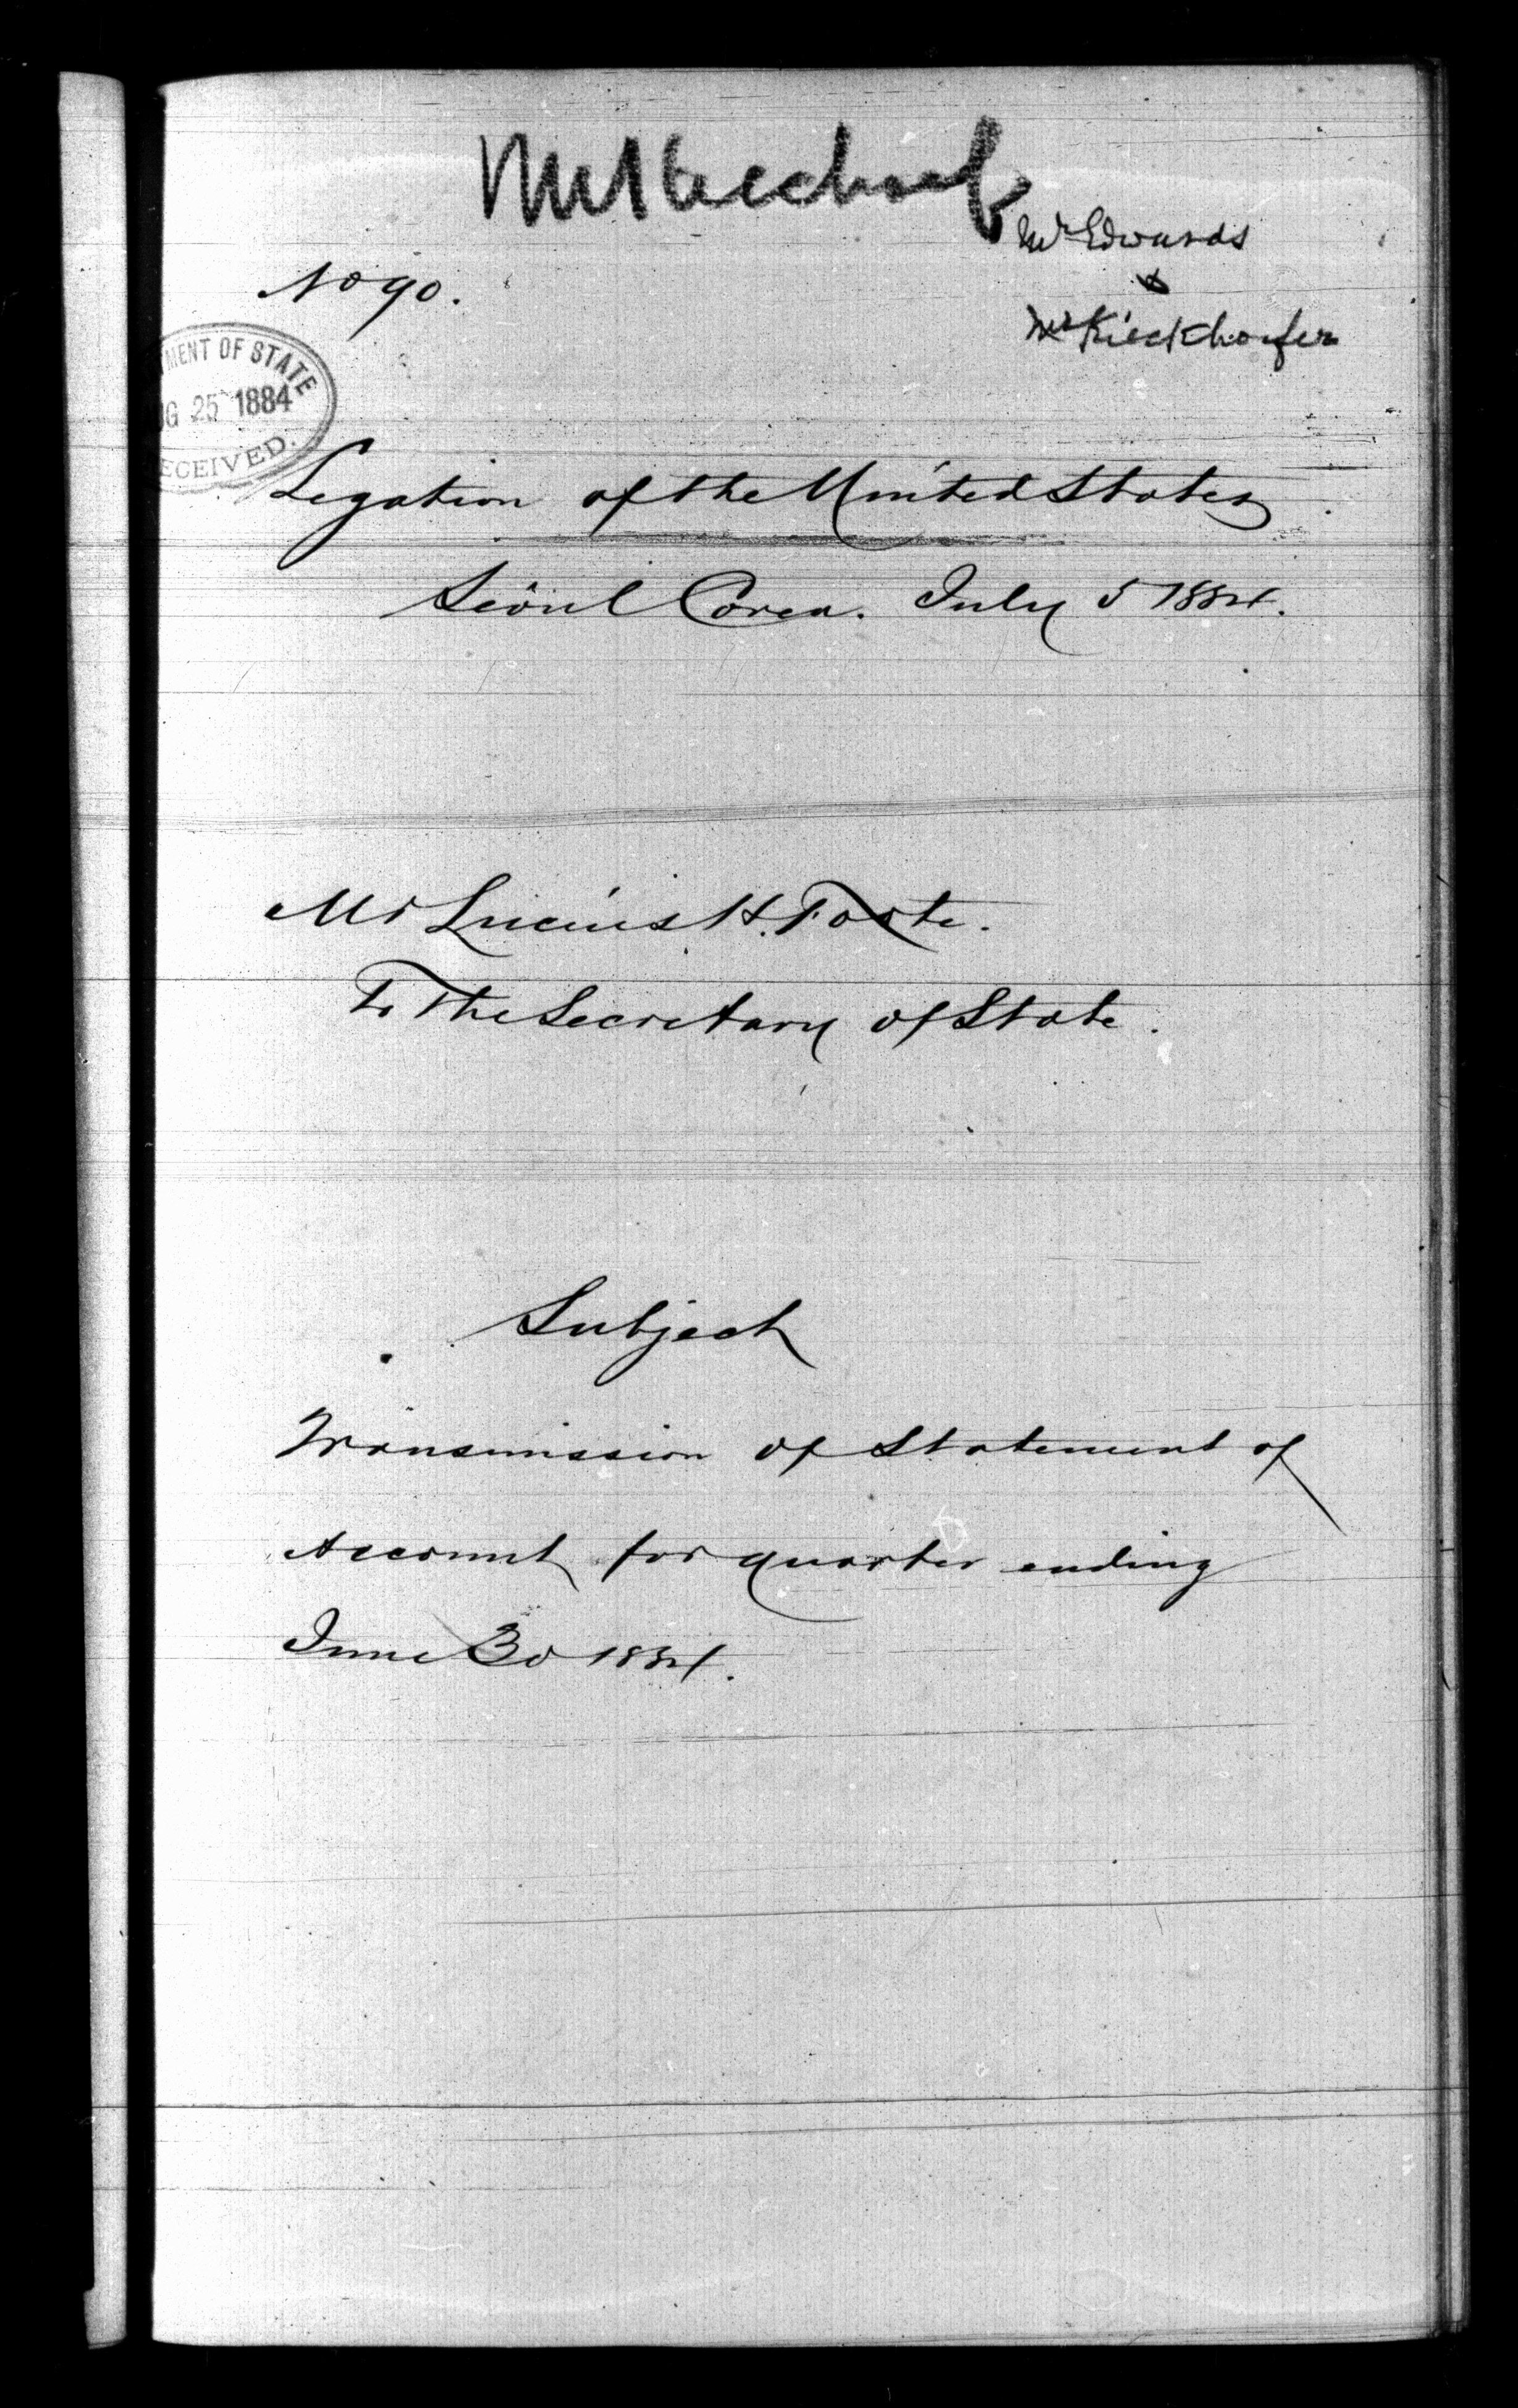 Mr Kieckhoef
Mr Edwards
&
Mr Kieckhoefer
No 90.
MENT OF STATE
UG 25 1884
ECEIVED.
Legation of the United States
Seoul Corea. July 5 1884.
Mr Lucius H. Foote.
To The Secretary of State.
Subject
Transmission of Statement of
Account for quarter ending
June 30 1884.